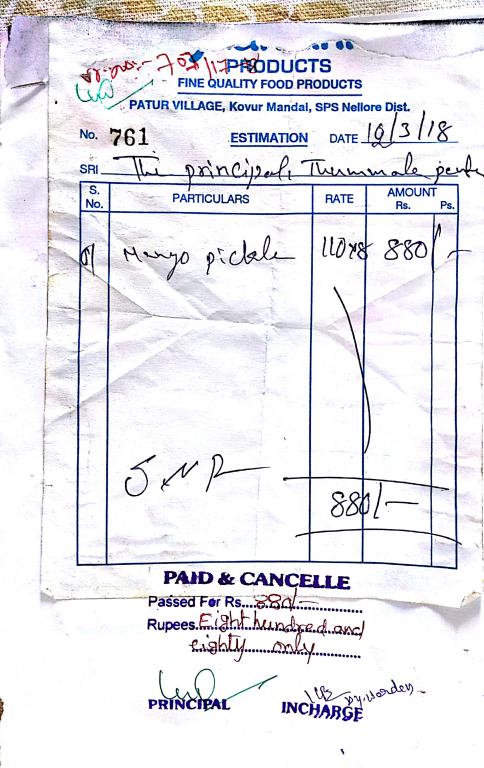 PRODUCTS
FINE QUALITY FOOD PRODUCTS
PATUR VILLAGE, Kovur Mandal, SPS Nellore Dist.
No. 761 ESTIMATION DATE 10/3/18
SRI The principal,
S. No. PARTICULARS RATE AMOUNT Rs. Ps.
01 Mango pickle 110x8 880/-
880/-
PAID & CANCELLE
Passed For Rs. 880/-
Rupees Eight hundred and
eighty only
PRINCIPAL INCHARGE